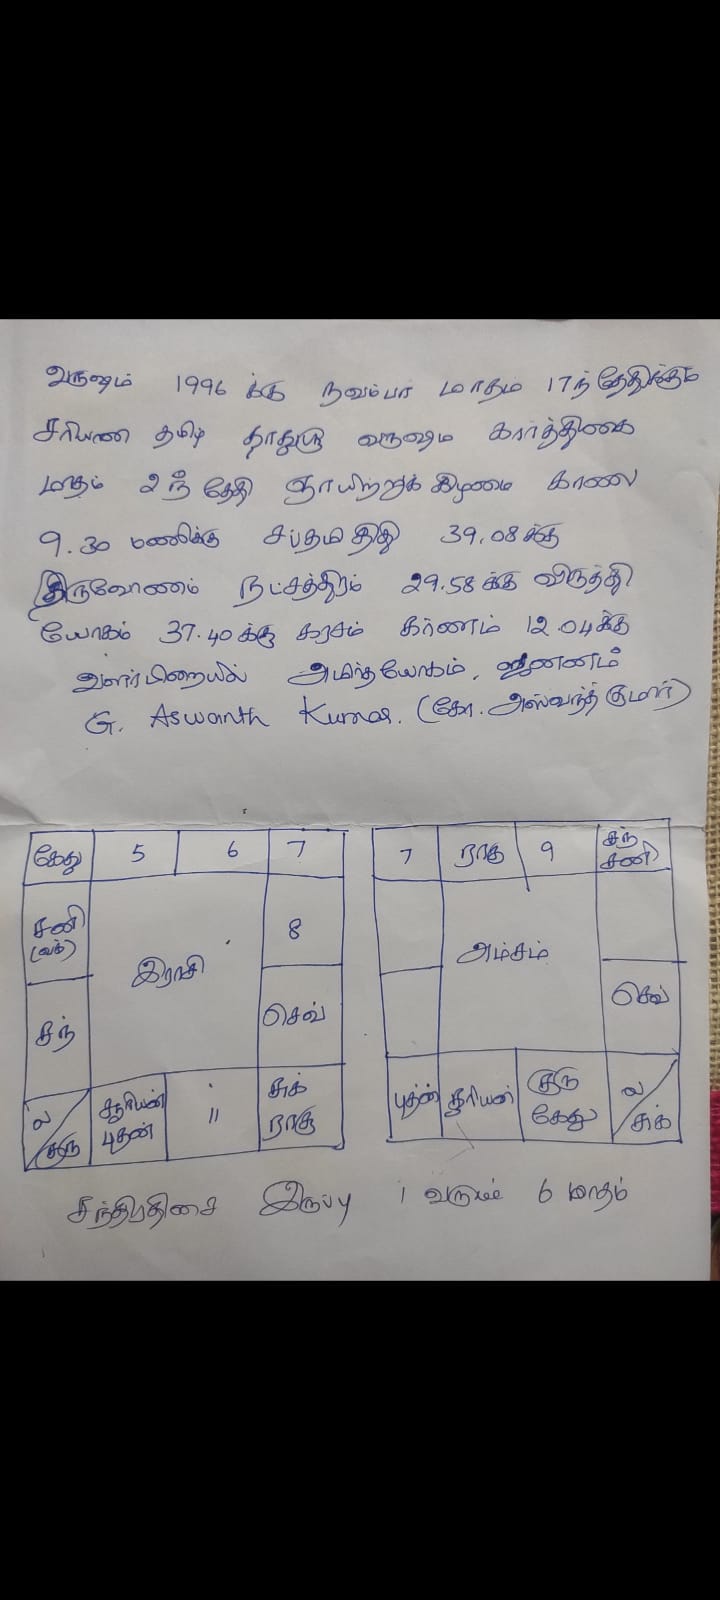 வருஷம் 1996 க்கு நவம்பர் மாதம் 17ந்தேதிக்கும்
சரியான தமிழ் தாதுளு வருஷம் கார்த்திகை
மாதம் 2ந் தேதி ஞாயிற்றுக்கிழமை காலை
9.30 மணிக்கு சப்தமி திதி 39.08க்கு
திருவோணம் நட்சத்திரம் 29.58க்கு விருத்தி
யோகம் 37.40க்கு கரசம் கர்ணம் 12.04க்கு
வளர்பிறையில் அமிர்தயோகம். ஜனனம்
G. Aswanth Kumar. (கோ. அஸ்வந்த் குமார்)
கேது 5 6 7
சனி (வக்) இராசி 8
சந் செவ்
ல/குரு சூரியன் புதன் 11 சுக் ராகு
7 ராகு 9 சந் சனி
அம்சம்
செவ்
புதன் சூரியன் குரு கேது ல/சுக்
சந்திரதிசை இருப்பு 1 வருஷம் 6 மாதம்